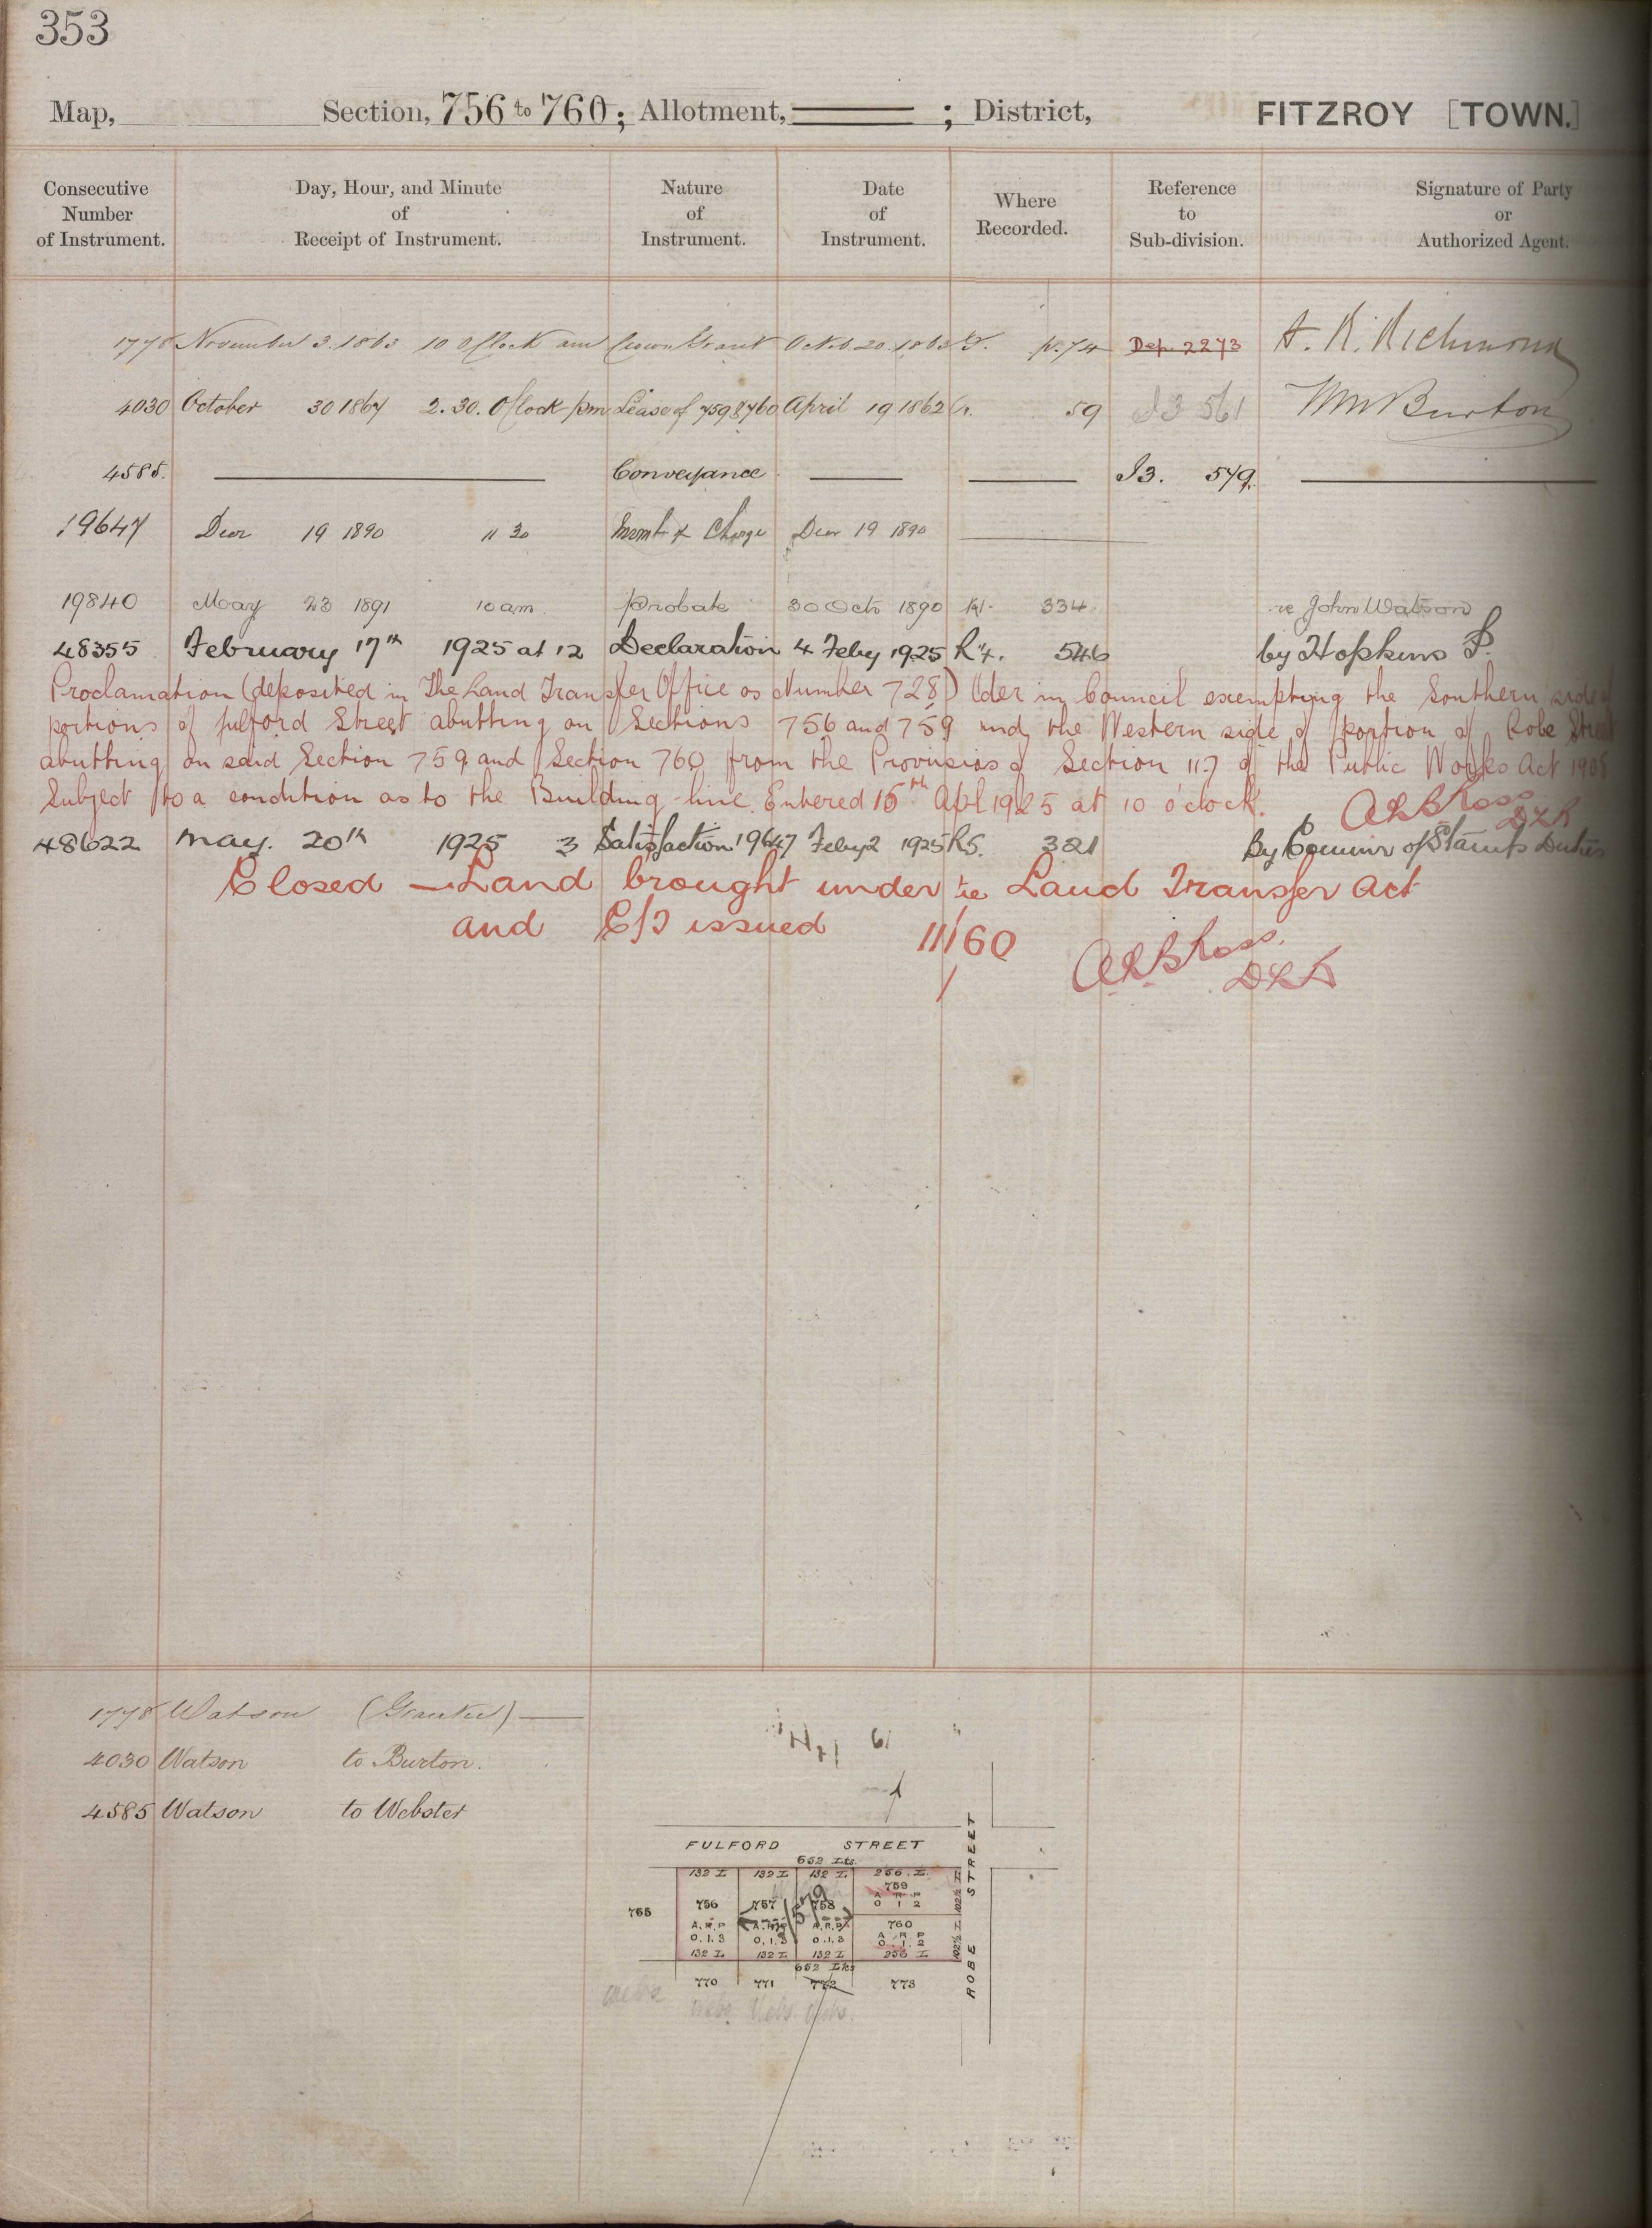 353
Map, Section, 756 to 760; Allotment, ——— ; District, FITZROY [TOWN.]
Consecutive Number of Instrument.
Day, Hour, and Minute of Receipt of Instrument.
Nature of Instrument.
Date of Instrument.
Where Recorded.
Reference to Sub-division.
Signature of Party or Authorized Agent.
1778 November 3. 1863 10 O'Clock am Crown Grant Octob. 20. 1863 74 Dep. 2273 Richmond
4030 October 30 1867 2.30. O'Clock pm Lease of 759 & 760 April 19 1862 59 I3 561 Wm Burton
4585. ——— Conveyance ——— ——— I3. 579. ———
19647 Decr 19 1890 11 30 Charge Decr 19 1890 ———
19840 May 23 1891 10 am Probate 30 Octr 1890 334 re John Watson
48355 February 17th 1925 at 12 Declaration 4 Feby 1925 R4. 546 by Hopkins S.
Proclamation (deposited in The Land Transfer Office as Number 728) Oder in Council exempting the Southern side of
portions of fulford Street abutting on Sections 756 and 759 and the Western side of portion of Robe Street
abutting on said Section 759 and Section 760 from the Provisions of Section 117 of the Public Works Act 1908
Subject to a condition as to the Building-line. Entered 16th Apl 1925 at 10 o'clock. DLR
48622 May. 20th 1925 3 Satisfaction 19647 Feby 2 1925 R5. 321 By Commr of Stamps Duties
Closed — Land brought under the Land Transfer Act
and C/T issued 111/60
DLR
1778 Watson (Grantee) ———
4030 Watson to Burton.
4585 Watson to Webster
FULFORD STREET
652 Lks.
132 L 132 L 132 L 256. L.
759
A R P
0 1 2
102½ L
755 756 757 758
579
A. R. P A. R. P A. R. P
0. 1. 3 0. 1. 3 0. 1. 3
760
A R P
0. 1. 2
102½ L
132 L 132 L 132 L 256 L
652 Lks
770 771 772 773
ROBE STREET